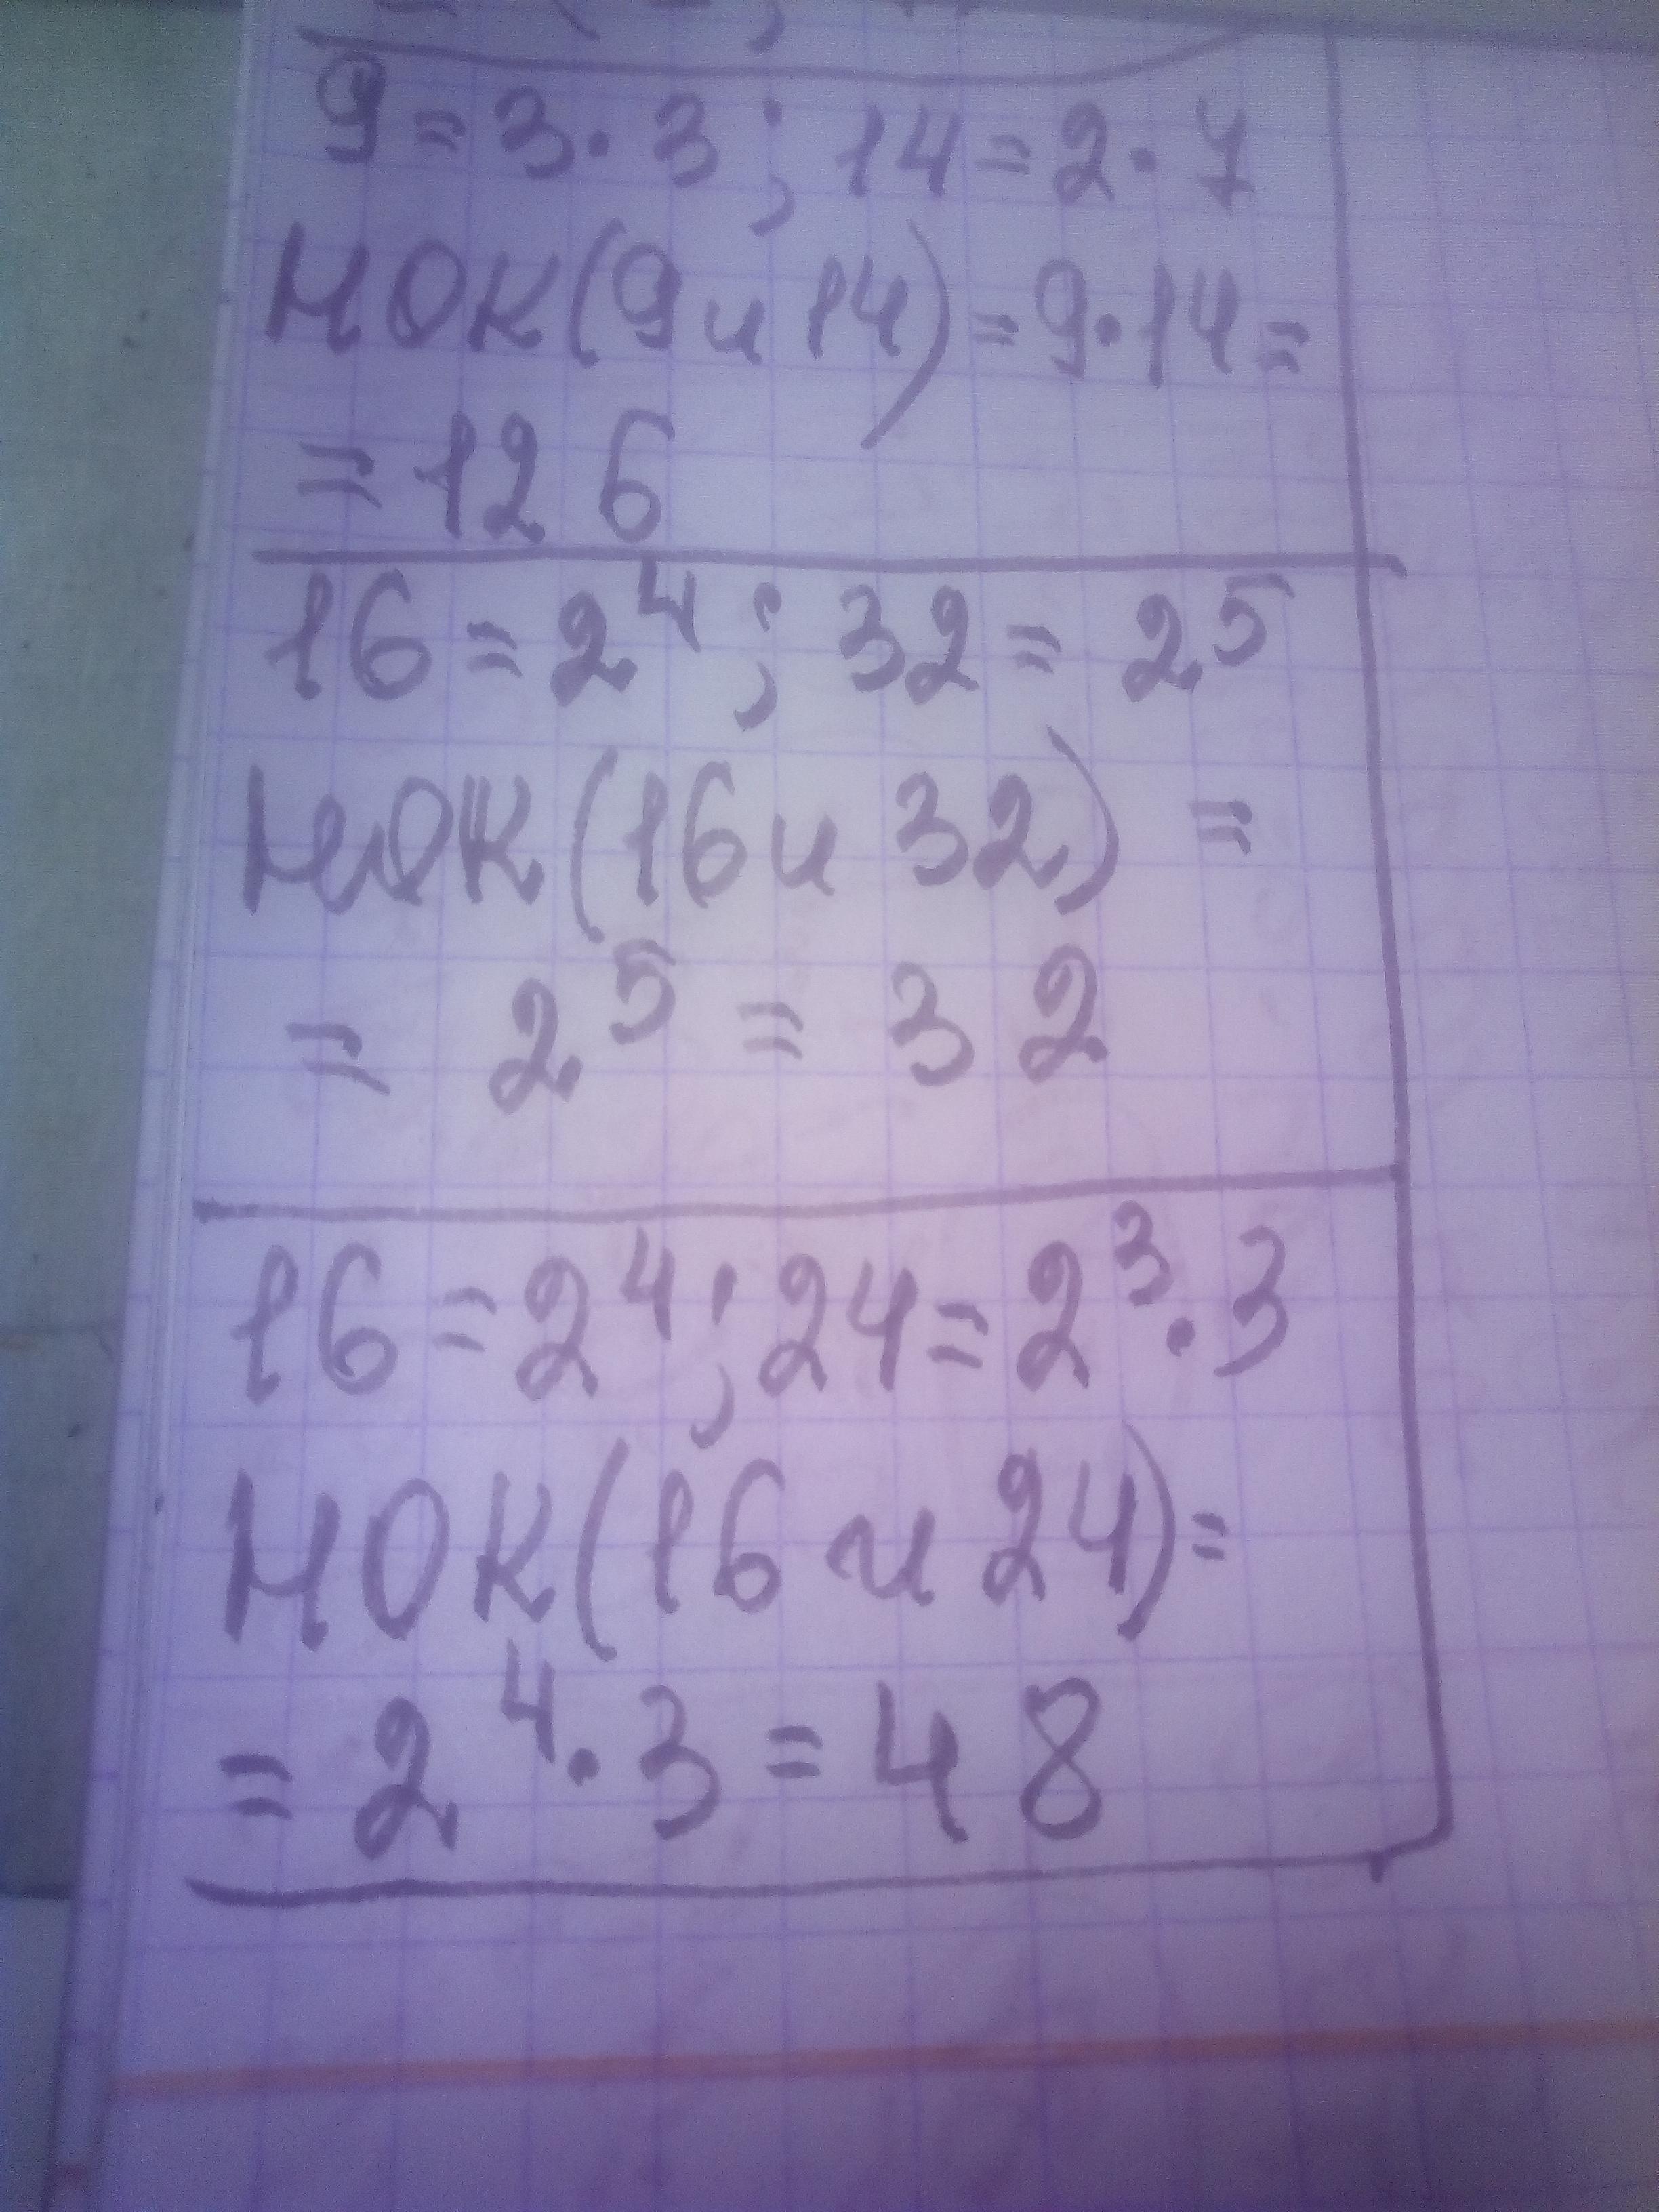 9 = 3 · 3 ; 14 = 2 · 7
НОК(9 и 14) = 9 · 14 =
= 126
16 = 2⁴ ; 32 = 2⁵
НОК(16 и 32) =
= 2⁵ = 32
16 = 2⁴ ; 24 = 2³ · 3
НОК(16 и 24) =
= 2⁴ · 3 = 48